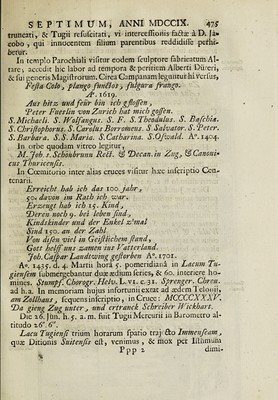 SEPTIMUM, ANNI MDCCIX. 475
truncati, & Tugii resuscitati, vi intercessionis factæ à D. Ja-
cobo, qui innocentem filium parentibus reddidisse perhi-
betur.
In templo Parochiali visitur eodem sculptore fabricatum Al-
tare, accedit hic labor ad tempora & peritiam Alberti Düreri,
& sui generis Magistrorum. Circa Campanam leguntur hi versus,
Festa Colo, plango functos, fulgura frango.
Aº. 1619.
Aus hitz und feür bin ich gflossen,
Peter Fuerlin von Zurich hat mich gossen.
S. Michaël. S. Wolfangus. S. F. S. Theodulus. S. Baschia.
S. Christophorus. S. Carolus Borromeus. S Salvator. S. Peter.
S. Barbara. S. S. Maria. S. Catharina. S. Oswald. Aº. 1404.
In orbe quodam vitreo legitur,
M. Joh. 1. Schönbrunn Rect. & Decan. in Zug, & Canoni-
cus Thuricensis.
In Cœmitorio inter alias cruces visitur hæc inscriptio Cen-
tenarii.
Erreicht hab ich das 100 jahr,
50. davon im Rath ich war.
Erzeugt hab ich 15. Kind,
Deren noch 9. bei leben sind,
Kindskinder und der Enkel z'mal
Sind 150. an der Zahl
Von disen viel in Geistlichem stand,
Gott helff uns zamen ins Vatterland.
Joh. Caspar Landtwing gestorben Aº. 1701.
Aº. 1435. d. 4. Martii horâ 5. pomeridianâ in Lacum Tu-
giensem submergebantur duæ ædium series, & 60. interiere ho-
mines. Stumpf. Chorogr. Helv. L. VI. c. 31. Sprenger. Chron.
ad h. a. In memoriam hujus infortunii extat ad ædem Telonii,
am Zollhaus, sequens inscriptio, in Cruce: MCCCCXXXV.
Da gieng Zug unter, und ertranck Schreiber Wickhart.
Die 26. Jun. h. 5. a. m. fuit Tugii Mercurii in Barometro al-
titudo 26". 6"'.
Lacu Tugiensi trium horarum spatio trajecto Immenseam,
quæ Ditionis Suitensis est, venimus, & mox per Isthmum
Ppp 2 dimi-